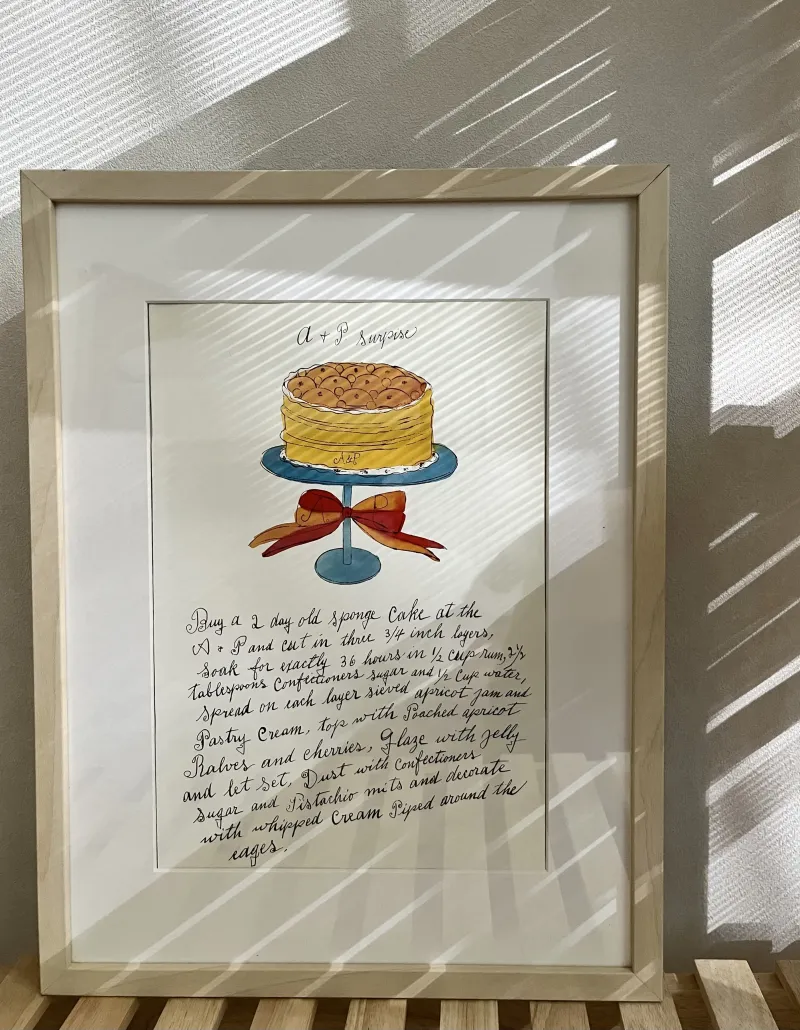 A + P Surpise
A&P
A P
Buy a 2 day old sponge Cake at the
A + P and cut in three 3/4 inch layers,
Soak for exactly 36 hours in 1/2 cup rum, 2 1/2
tablespoons Confectioners sugar and 1/2 Cup water,
Spread on each layer sieved apricot jam and
Pastry Cream, top with Poached apricot
Ralves and cherries, Glaze with jelly
and let set, Dust with Confectioners
sugar and Pistachio mits and decorate
with whipped Cream Piped around the
eages.